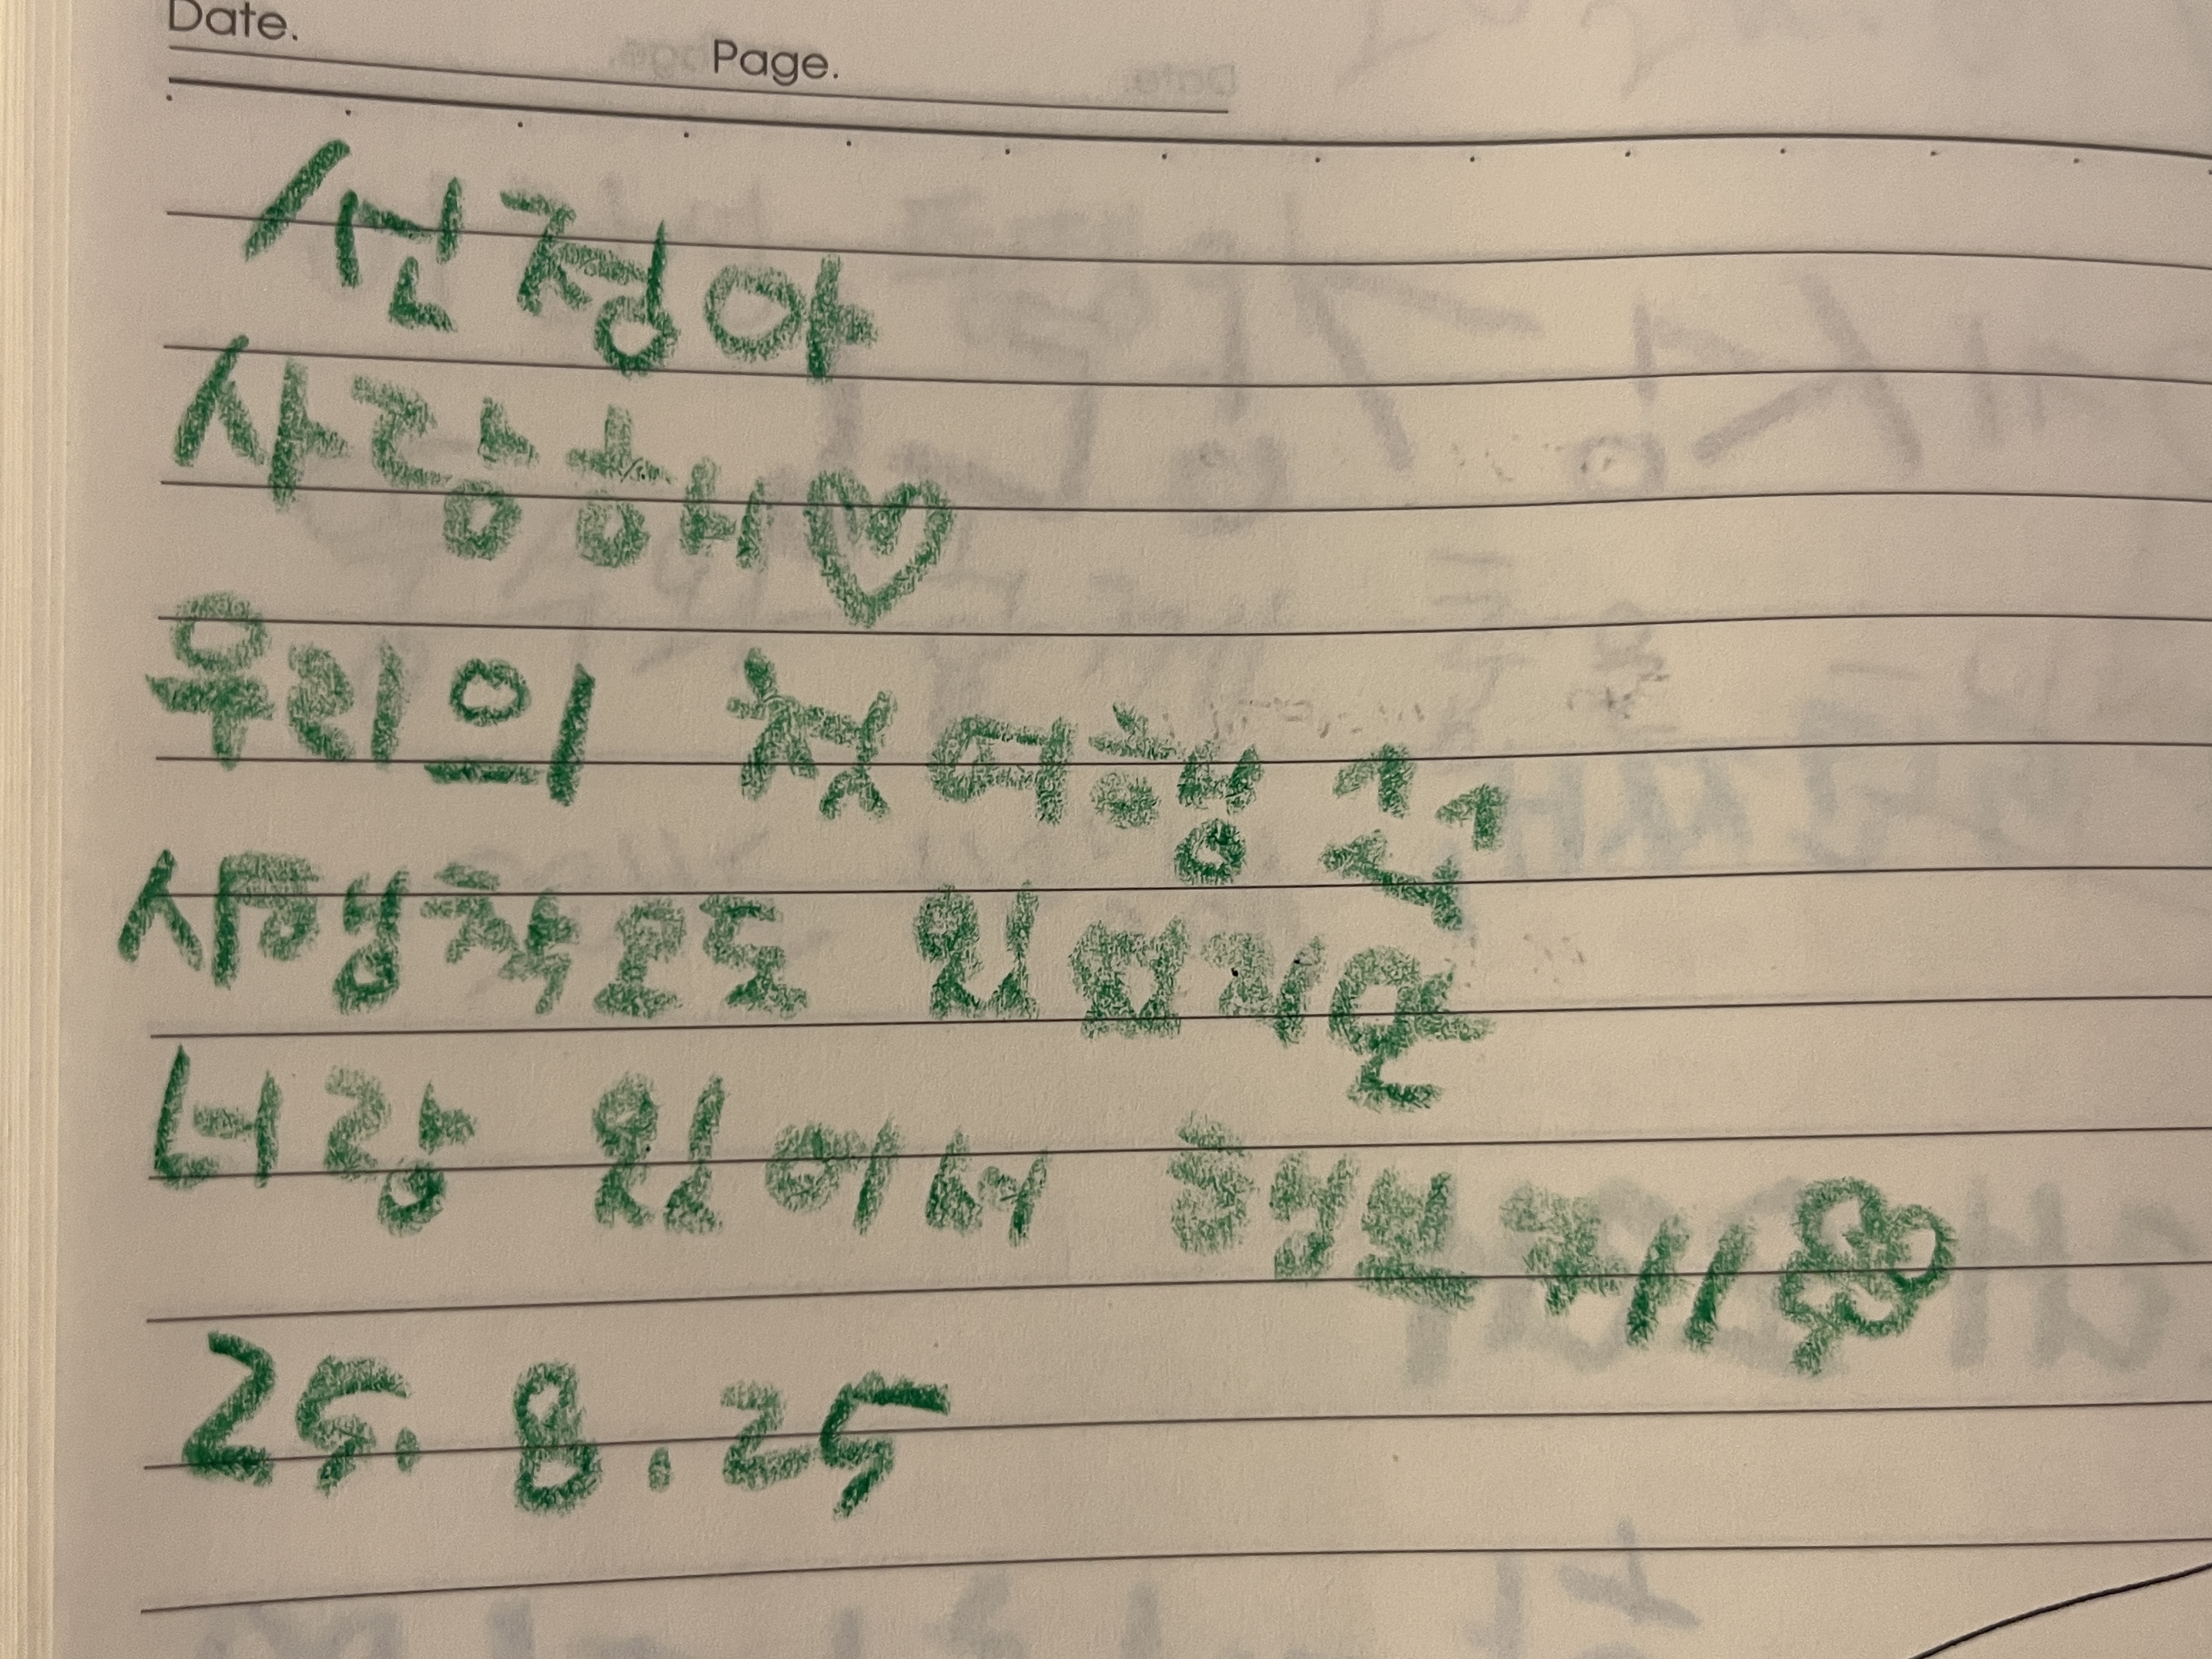 Date.
Page.
선정아
사랑해♡
우리의 첫여행 ^^
사행착오도 있었지만
너랑 있어서 행복
25. 8. 25